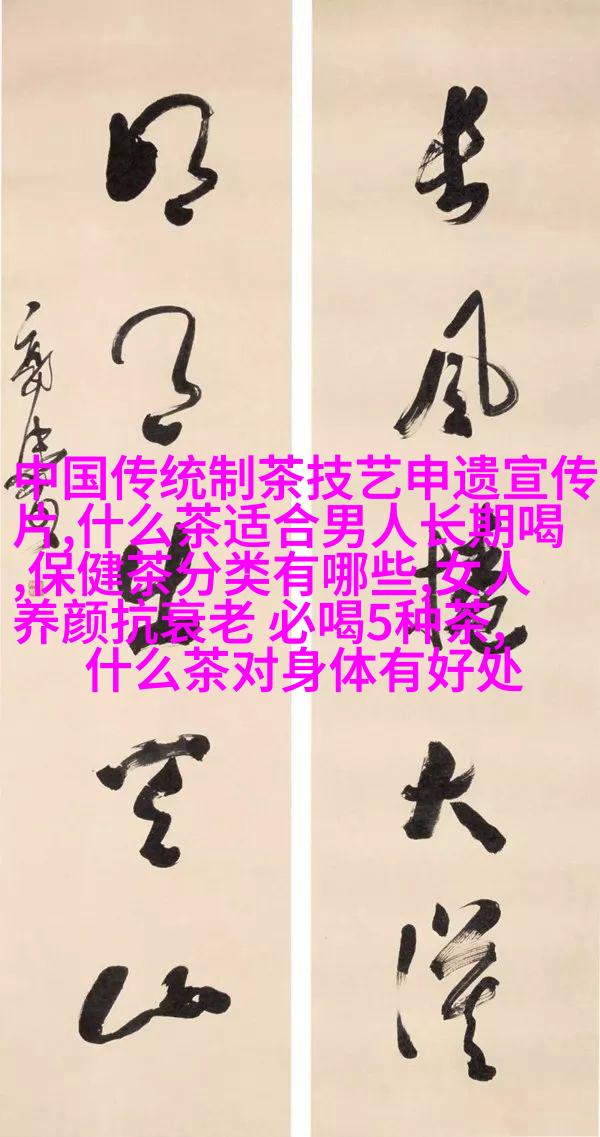 長風大漠
明月天山
中国传统制茶技艺申遗宣传
片,什么茶适合男人长期喝
,保健茶分类有哪些,女人
养颜抗衰老 必喝5种茶,
什么茶对身体有好处